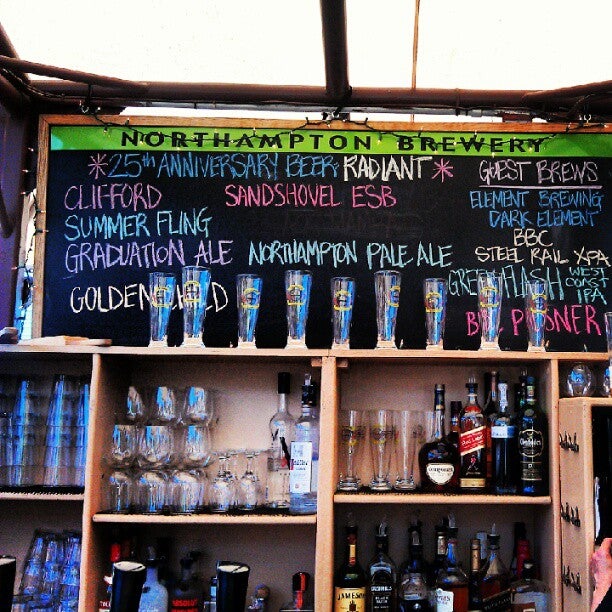 NORTHAMPTON BREWERY
*25th ANNIVERSARY BEER RADIANT*
CLIFFORD SANDSHOVEL ESB
SUMMER FLING
GRADUATION ALE NORTHAMPTON PALE ALE
GUEST BREWS
ELEMENT BREWING
DARK ELEMENT
BBC
STEEL RAIL XPA
GREEN FLASH WEST
COAST
IPA
PILSNER
JAMESON